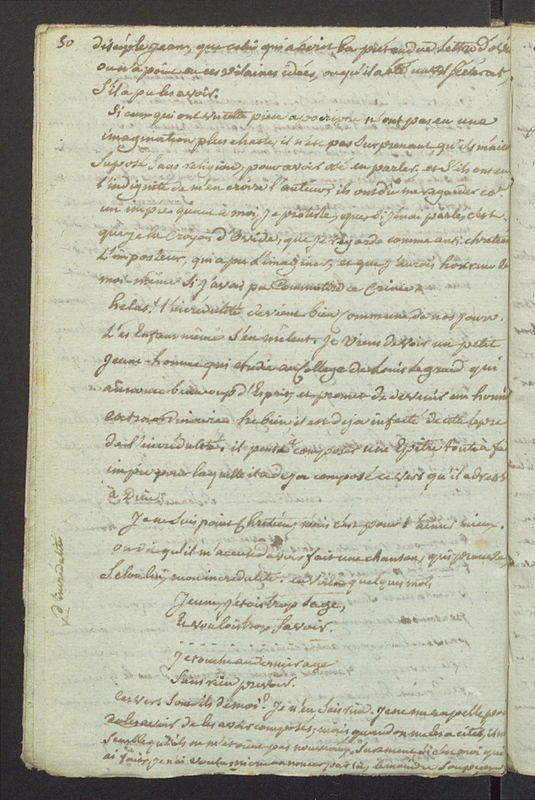 50
disciple jean, que celui qui a écrit la prétendue Lettre d'
ou n'a point eu ces vilaines idées, ou qu'il a été un scélérat,
S'il a pu les avoir.
Si ceux qui ont vu cette piece apocriphe n'ont pas eu une
imagination plus chaste, il n'est pas surprenant qu'ils m'aient
Supposé, sans religion, pour avoir osé en parler. et S'ils ont eu
l'indignité de m'en croire l'auteur, ils ont dû me regarder
un impie. quant à moi, je proteste, que si j'en ai parlé, c'est
que je la croyois d'Ovide, que je regarde comme anti chretien
L'imposteur, qui a pu l'imaginer, et que j'aurois horreur de
moi même Si j'avois pu Commettre ce Crime.
helas! l'incrédulité devient bien commune de nos jours.
Les Enfans même s'en mêlent. Je viens de voir un petit
jeune-homme qui etudie au College de Louis le grand qui
annonce beaucoup d'Esprit, et promet de devenir un homme
extraordinaire. he bien, il est deja infecté de cette lepre
de l'incrédulité, il pense à composer une Epître toute à fait
impie pour laquelle il a deja composé ce vers qu'il adresse
à Dieu:
Je ne suis point Chrétien, mais c'est pour t'aimer mieux.
qu'il m'accuse d'avoir fait une chanson, qui prouve
Selon lui, mon incredulité. en voici quelques mots
Jeune, j'étois trop sage,
Et voulois trop Savoir.
Je touche au dernier age
Sans rien prevoir.
Ces vers sont ils de moi? Je n'en sais rien. Je ne me rappelle pas
de les avoir composés; mais quand on me les a cités, il me
Semble qu'ils ne m'etoient pas nouveaux. Surement si c'est moi qui
ai faits, je n'ai voulu, ni me annoncer par là, le moindre soupçon
d'incredulité